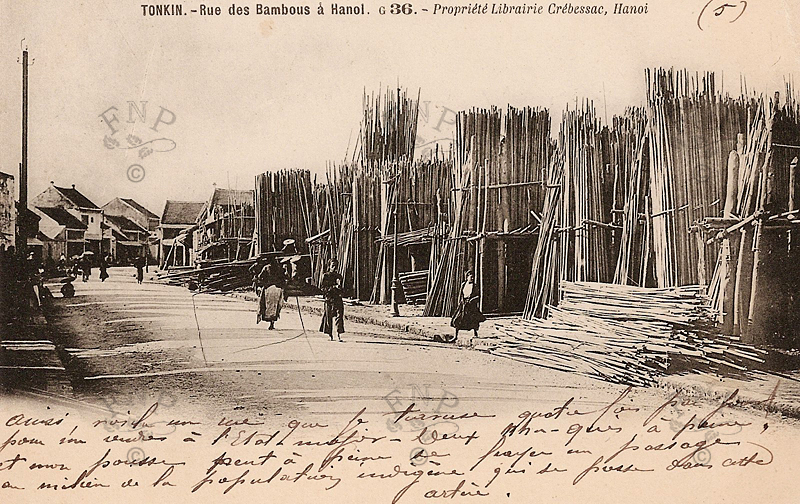 TONKIN. - Rue des Bambous à Hanoï. G 36. - Propriété Librairie Crébessac, Hanoi
(5)
FNP
©
FNP
FNP
©
FNP
©
ainsi voilà une rue que je traverse quatre fois par jour
pour me rendre à l'Etat-major - Deux pha-qués à peine,
et mon pousse peut à peine se frayer un passage
au milieu de la population indigène qui se presse dans cette
artère.